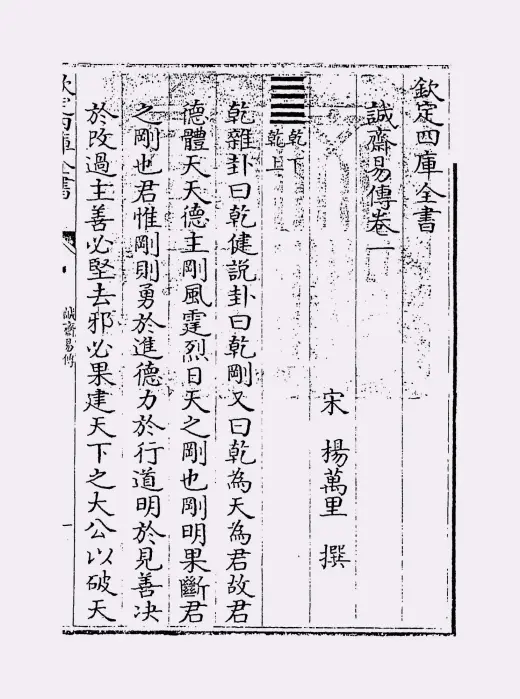 欽定四庫全書
誠齋易傳卷一
宋 楊萬里 撰
乾下
乾上
乾雜卦曰乾健說卦曰乾剛又曰乾為天為君故君
德體天天德主剛風霆烈日天之剛也剛明果斷君
之剛也君惟剛則勇於進德力於行道明於見善决
於改過主善必堅去邪必果建天下之大公以破天
欽定四庫全書
誠齋易傳
一